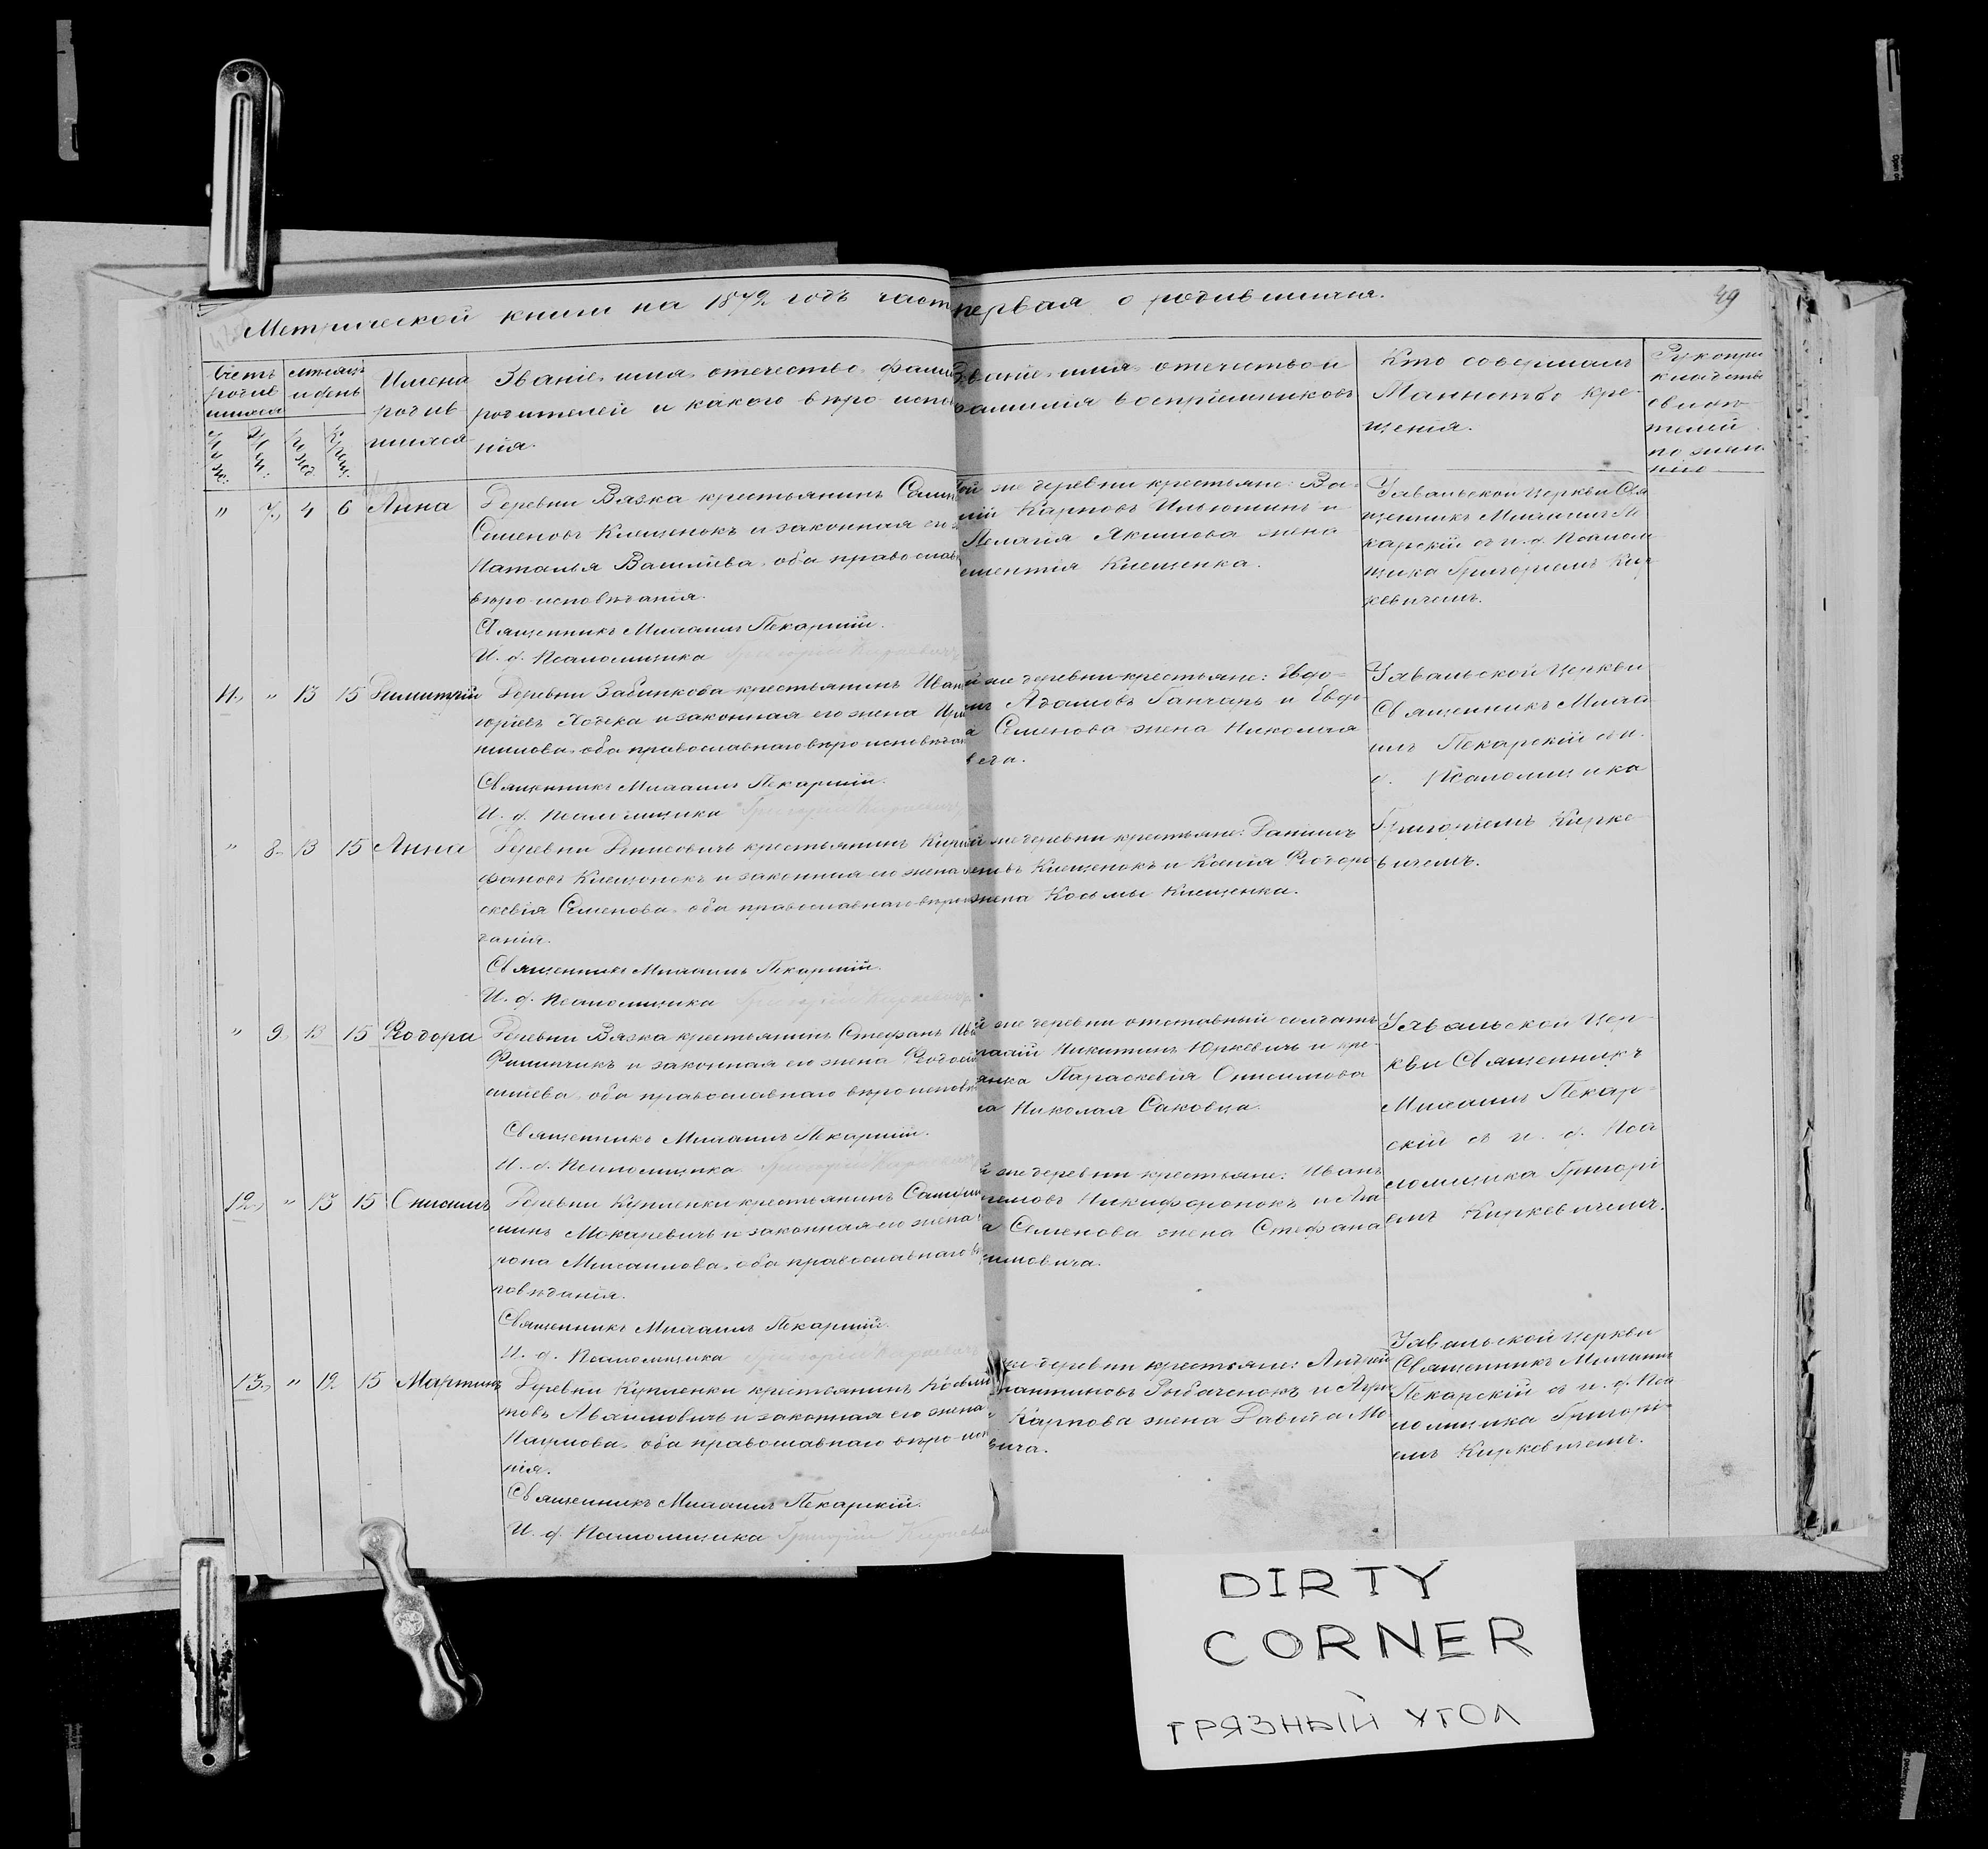 Метрической книги на 1872 годъ част первая о родившихся.
49
Счетъ родив шихся
мѣсяцъ и день
Имена родив шихся
Званіе, имя, отечество, фами
родителей и какого вѣро-испо
нія.
Званіе, имя, отечество и
фамилія воспріемниковъ
Кто совершалъ
Таинство кре-
щенія.
Рукопри
кладство
свидѣ-
телей
по жела-
нію
" 7. 4 6 Анна
Деревни Вязка крестьянинъ
Семеновъ Клещенокъ и законная его
Наталья Василіева, оба православ
вѣро-исповѣданія.
Священникъ Михаилъ Пекарскій.
И. д. Псаломщика Григорій Киркевичъ
той же деревни крестьяне: Ва-
лій Карповъ Ильюшинъ и
Пелагія Якимова жена
ементія Клещенка.
Завальской церкви Свя
щенникъ Михаилъ Пе
карскій съ и. д. Псалом
щика Григоріемъ Кир
кевичемъ.
11. " 13 15 Димитрій
Деревни Забинкова крестьянинъ Иван
горіевъ Ходека и законная его жена Ири
нимова, оба православнаго вѣро-исповѣдан
Священникъ Михаилъ Пекарскій.
И. д. Псаломщика Григорій Киркевичъ
й же деревни крестьяне: Евдо-
имъ Адамовъ Ганчаръ и Евдо
а Семенова жена Николая
Завальской Церкви
Священникъ Миха
илъ Пекарскій съ и.
д. Псаломщика
Григоріемъ Кирке
вичемъ.
" 8. 13 15 Анна
Деревни Денисовичъ крестьянинъ
фановъ Клещонокъ и законная его жена
скевія Семенова, оба православнаго вѣро
данія.
Священникъ Михаилъ Пекарскій.
И. д. Псаломщика Григорій Киркевичъ
й же деревни крестьяне: Даніилъ
Клещенокъ и Ксенія Ѳеодоро
жена Косьмы Клещенка.
" 9. 13 15 Ѳеодора
Деревни Вязка крестьянинъ Стефанъ Ив
Филипчикъ и законная его жена Ѳеодо
силіева, оба православнаго вѣро-исповѣ
Священникъ Михаилъ Пекарскій.
И. д. Псаломщика Григорій Киркевичъ
й же деревни отставный солдатъ
Никитинъ Юркевичъ и кре-
янка Параскевія Онисимова
на Николая Саковца.
Завальской Цер-
кви Священникъ
Михаилъ Пекар-
скій съ и. д. Пса
ломщика Григорі
емъ Киркевичемъ.
12. " 13 15 Онисимъ
Деревни Купленки крестьянинъ
минъ Макаревичъ и законная его жена
рона Михаилова, оба православнаго вѣ
повѣданія.
Священникъ Михаилъ Пекарскій.
И. д. Псаломщика Григорій Киркевичъ
й же деревни крестьяне: Иванъ
Никифоронокъ и
а Семенова жена Стефана
имовича.
13. " 12 15 Мартинъ
Деревни Купленки крестьянинъ Косьма
товъ Авхимовичъ и законная его жена
Наумова, оба православнаго вѣро-исп
нія.
Священникъ Михаилъ Пекарскій.
И. д. Псаломщика Григорій Киркеви
же деревни крестьяне: Андрей
стантиновъ Рыбаченокъ и
Карпова жена Давида Мо
вича.
Завальской церкви
Священникъ Михаилъ
Пекарскій съ и. д. Пса
ломщика Григорі-
емъ Киркевичемъ.
DIRTY
CORNER
ГРЯЗНЫЙ УГОЛ